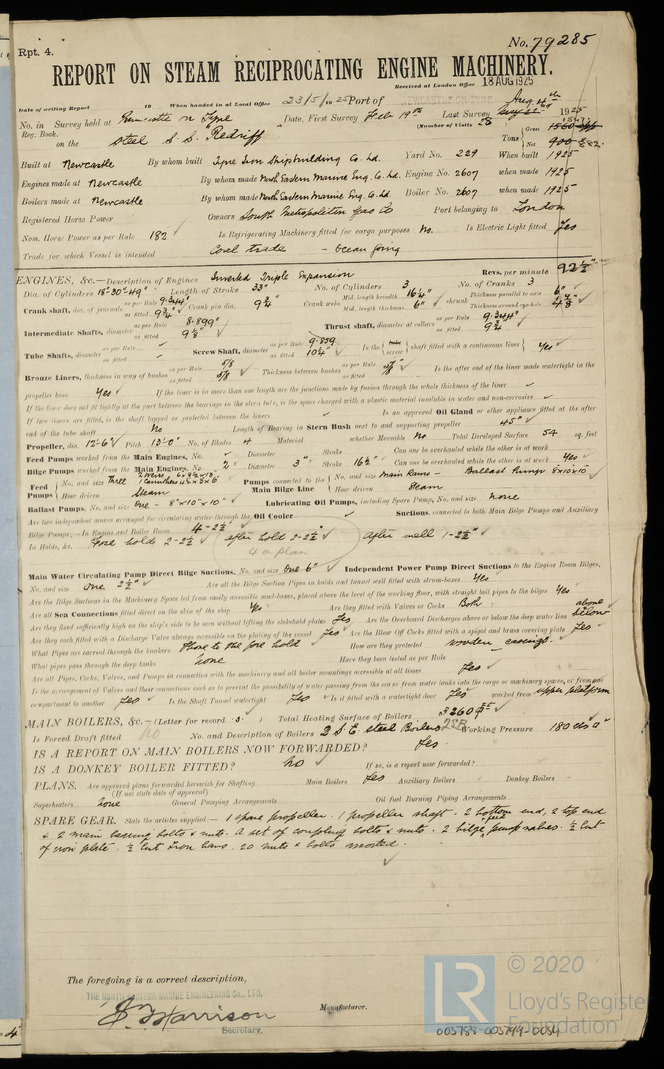 Rpt. 4.
No. 79285
REPORT ON STEAM RECIPROCATING ENGINE MACHINERY.
Received at London Office 18 AUG 1925
Date of writing Report 19 When handed in at Local Office 23/5/1925 Port of NEWCASTLE-ON-TYNE
No. in Survey held at Newcastle on Tyne Date, First Survey Feb 19th Last Survey Aug 4th 1925
Reg. Book. (Number of Visits 28
on the Steel S.S. Redriff Tons Gross Net
Built at Newcastle By whom built Tyne Iron Shipbuilding Co. Ld. Yard No. 229 When built 1925
Engines made at Newcastle By whom made North Eastern Marine Eng. Co. Ld. Engine No. 2607 when made 1925
Boilers made at Newcastle By whom made North Eastern Marine Eng. Co. Ld. Boiler No. 2607 when made 1925
Registered Horse Power Owners South Metropolitan Gas Co Port belonging to London
Nom. Horse Power as per Rule 182 Is Refrigerating Machinery fitted for cargo purposes No. Is Electric Light fitted Yes
Trade for which Vessel is intended Coal trade - Ocean going
ENGINES, &c.—Description of Engines Inverted Triple Expansion Revs. per minute 92½
Dia. of Cylinders 18"-30"-49" Length of Stroke 33" No. of Cylinders 3 No. of Cranks 3
Crank shaft, dia. of journals as per Rule 9.344" as fitted 9¾" Crank pin dia. 9¾" Crank webs Mid. length breadth 16¼" Mid. length thickness 6" shrunk Thickness parallel to axis 6" Thickness around eyehole 4⅜"
Intermediate Shafts, diameter as per Rule 8.899" as fitted 9⅛" Thrust shaft, diameter at collars as per Rule 9.344" as fitted 9¾"
Tube Shafts, diameter as per Rule as fitted Screw Shaft, diameter as per Rule 9.859 as fitted 10¼" Is the screw shaft fitted with a continuous liner Yes
Bronze Liners, thickness in way of bushes as per Rule 5/8 as fitted 5/8 Thickness between bushes as per Rule as fitted 5/8" Is the after end of the liner made watertight in the
propeller boss Yes If the liner is in more than one length are the junctions made by fusion through the whole thickness of the liner
If the liner does not fit tightly at the part between the bearings in the stern tube, is the space charged with a plastic material insoluble in water and non-corrosive
If two liners are fitted, is the shaft lapped or protected between the liners Is an approved Oil Gland or other appliance fitted at the after
end of the tube shaft No Length of Bearing in Stern Bush next to and supporting propeller 45"
Propeller, dia. 12'-6" Pitch 13'-0" No. of Blades 4 Material whether Moveable No Total Developed Surface 54 sq. feet
Feed Pumps worked from the Main Engines, No. Diameter Stroke Can one be overhauled while the other is at work
Bilge Pumps worked from the Main Engines, No. 2 Diameter 3" Stroke 16½" Can one be overhauled while the other is at work Yes
Feed Pumps No. and size Three How driven Steam Pumps connected to the Main Bilge Line No. and size Main Rams - Ballast Pump 8"x10"x10" How driven Steam
Ballast Pumps, No. and size One - 8"x10"x10" Lubricating Oil Pumps, including Spare Pump, No. and size none
Are two independent means arranged for circulating water through the Oil Cooler Suctions, connected to both Main Bilge Pumps and Auxiliary
Bilge Pumps;—In Engine and Boiler Room 4 - 2½"
In Holds, &c. Fore hold 2-2½" After hold 2-2½" After well 1-2½"
4 on plan
Main Water Circulating Pump Direct Bilge Suctions, No. and size One 6" Independent Power Pump Direct Suctions to the Engine Room Bilges,
No. and size One 2½" Are all the Bilge Suction Pipes in holds and tunnel well fitted with strum-boxes Yes
Are the Bilge Suctions in the Machinery Space led from easily accessible mud-boxes, placed above the level of the working floor, with straight tail pipes to the bilges Yes
Are all Sea Connections fitted direct on the skin of the ship Yes Are they fitted with Valves or Cocks Both
Are they fixed sufficiently high on the ship's side to be seen without lifting the stokehold plates Yes Are the Overboard Discharges above or below the deep water line above below
Are they each fitted with a Discharge Valve always accessible on the plating of the vessel Yes Are the Blow Off Cocks fitted with a spigot and brass covering plate Yes
What Pipes are carried through the bunkers Those to the fore hold How are they protected wooden casings.
What pipes pass through the deep tanks none Have they been tested as per Rule
Are all Pipes, Cocks, Valves, and Pumps in connection with the machinery and all boiler mountings accessible at all times Yes
Is the arrangement of Valves and their connections such as to prevent the possibility of water passing from the sea or from water tanks into the cargo or machinery spaces, or from one
compartment to another Yes Is the Shaft Tunnel watertight Yes Is it fitted with a watertight door Yes worked from upper platform
MAIN BOILERS, &c.—(Letter for record S ) Total Heating Surface of Boilers 3260
Is Forced Draft fitted No No. and Description of Boilers 2 S.E. steel Boilers 2SB Working Pressure 180 lbs
IS A REPORT ON MAIN BOILERS NOW FORWARDED? Yes.
IS A DONKEY BOILER FITTED? No If so, is a report now forwarded?
PLANS. Are approved plans forwarded herewith for Shafting Main Boilers Yes Auxiliary Boilers Donkey Boilers
(If not state date of approval)
Superheaters none General Pumping Arrangements Oil fuel Burning Piping Arrangements
SPARE GEAR. State the articles supplied:— 1 spare propeller. 1 propeller shaft. 2 bottom end, 2 top end
& 2 main bearing bolts & nuts. A set of coupling bolts & nuts. 2 bilge & feed pump valves. ½ Cwt
of iron plate. ½ Cwt Iron bars. 20 nuts & bolts assorted.
The foregoing is a correct description,
THE NORTH EASTERN MARINE ENGINEERING CO., LTD.
Harrison Manufacturer.
Secretary.
© 2020
LR Lloyd's Register
Foundation
003788-003799-0034